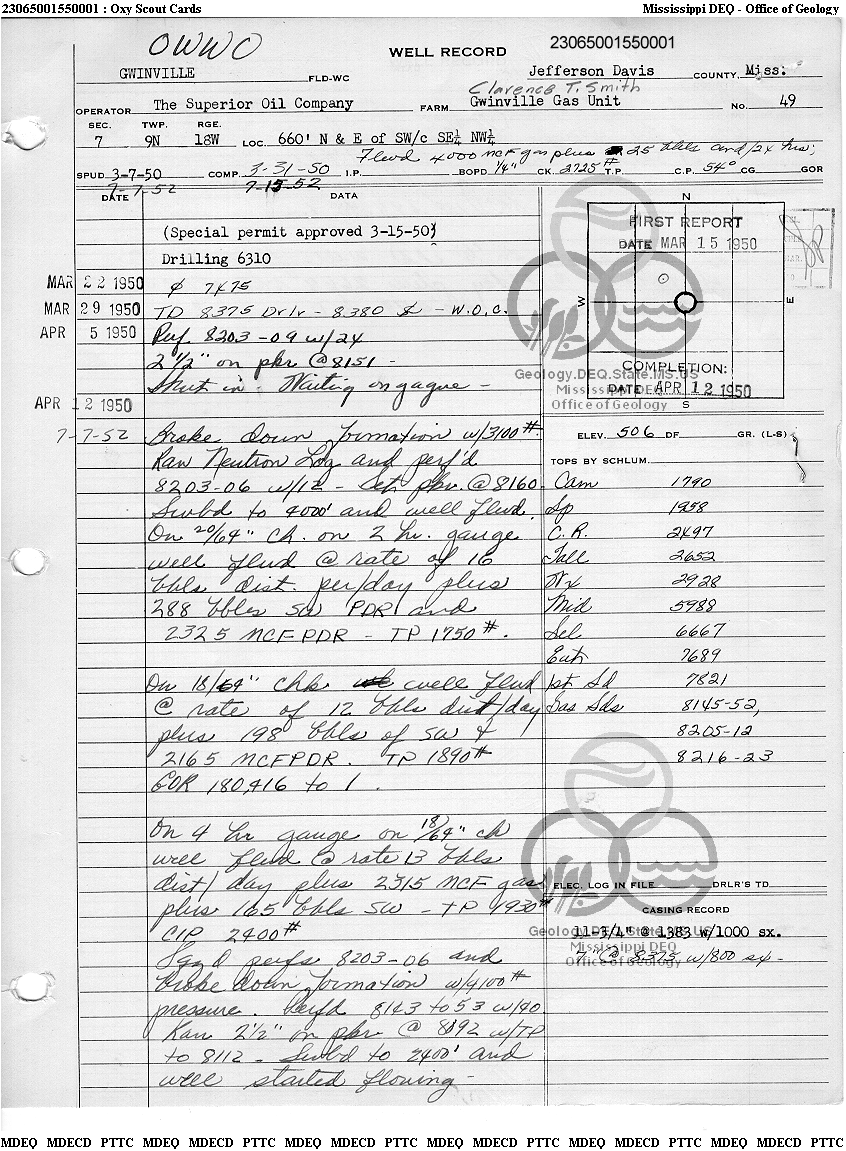 23065001550001 : Oxy Scout Cards Mississippi DEQ - Office of Geology
OWWO
WELL RECORD 23065001550001
GWINVILLE FLD-WC Jefferson Davis COUNTY, Miss:
Clarence T. Smith
OPERATOR The Superior Oil Company FARM Gwinville Gas Unit No. 49
SEC. TWP. RGE.
7 9N 18W LOC. 660' N & E of SW/c SE¼ NW¼
Flwd 4000 MCF gas plus 25 bbls cond/24 hrs;
SPUD 3-7-50 COMP. 3-31-50 I.P. BOPD 1/4" CK 2725# T.P. C.P. 54° CG GOR
7-7-52 7-15-52
DATE DATA
(Special permit approved 3-15-50)
Drilling 6310
MAR 22 1950 7475
MAR 29 1950 TD 8375 Drlr - 8380 - W.O.C.
APR 5 1950 Perf. 8203-09 w/24
2 1/2" on pkr @ 8151 -
Shut in. Waiting on gague -
APR 12 1950
7-7-52 Broke down formation w/3100#.
Ran Neutron Log and perf'd
8203-06 w/12 - Set pkr @ 8160.
Swbd to 4000' and well flwd.
On 20/64" ch. on 2 hr. gauge
well flwd @ rate of 16
bbls dist. per/day plus
288 bbls SW PDR and
2325 MCFPDR - TP 1750#.
On 18/64" chk well flwd
@ rate of 12 bbls dist/day
plus 198 bbls of SW &
2165 MCFPDR. TP 1890#
GOR 180,416 to 1.
On 4 hr gauge on 18/64" ch
well flwd @ rate 13 bbls
dist/day plus 2315 MCF gas
plus 165 bbls SW - TP 1930#
CIP 2400#
Sqzd perfs 8203-06 and
broke down formation w/4100#
pressure. Perfd 8143 to 53 w/40
Ran 2 1/2" on pkr @ 8092 w/TP
to 8112 - Swbd to 2400' and
well started flowing -
N
FIRST REPORT
DATE MAR 15 1950
W E
COMPLETION:
DATE APR 12 1950
S
Geology.DEQ.State.MS.US
Mississippi DEQ
Office of Geology
ELEV. 506 DF GR. (L-S)
TOPS BY SCHLUM.
Cam 1790
Sp 1958
C.R. 2497
Tall 2652
Wx 2928
Mid 5988
Sel 6667
Eut 7689
1st Sd 7821
Gas Sds 8145-52,
8205-12
8216-23
ELEC. LOG IN FILE DRLR'S TD
CASING RECORD
11-3/4" @ 1383 w/1000 sx.
7" @ 8375 w/800 sx -
Geology.DEQ.State.MS.US
Mississippi DEQ
Office of Geology
MDEQ MDECD PTTC MDEQ MDECD PTTC MDEQ MDECD PTTC MDEQ MDECD PTTC MDEQ MDECD PTTC MDEQ MDECD PTTC